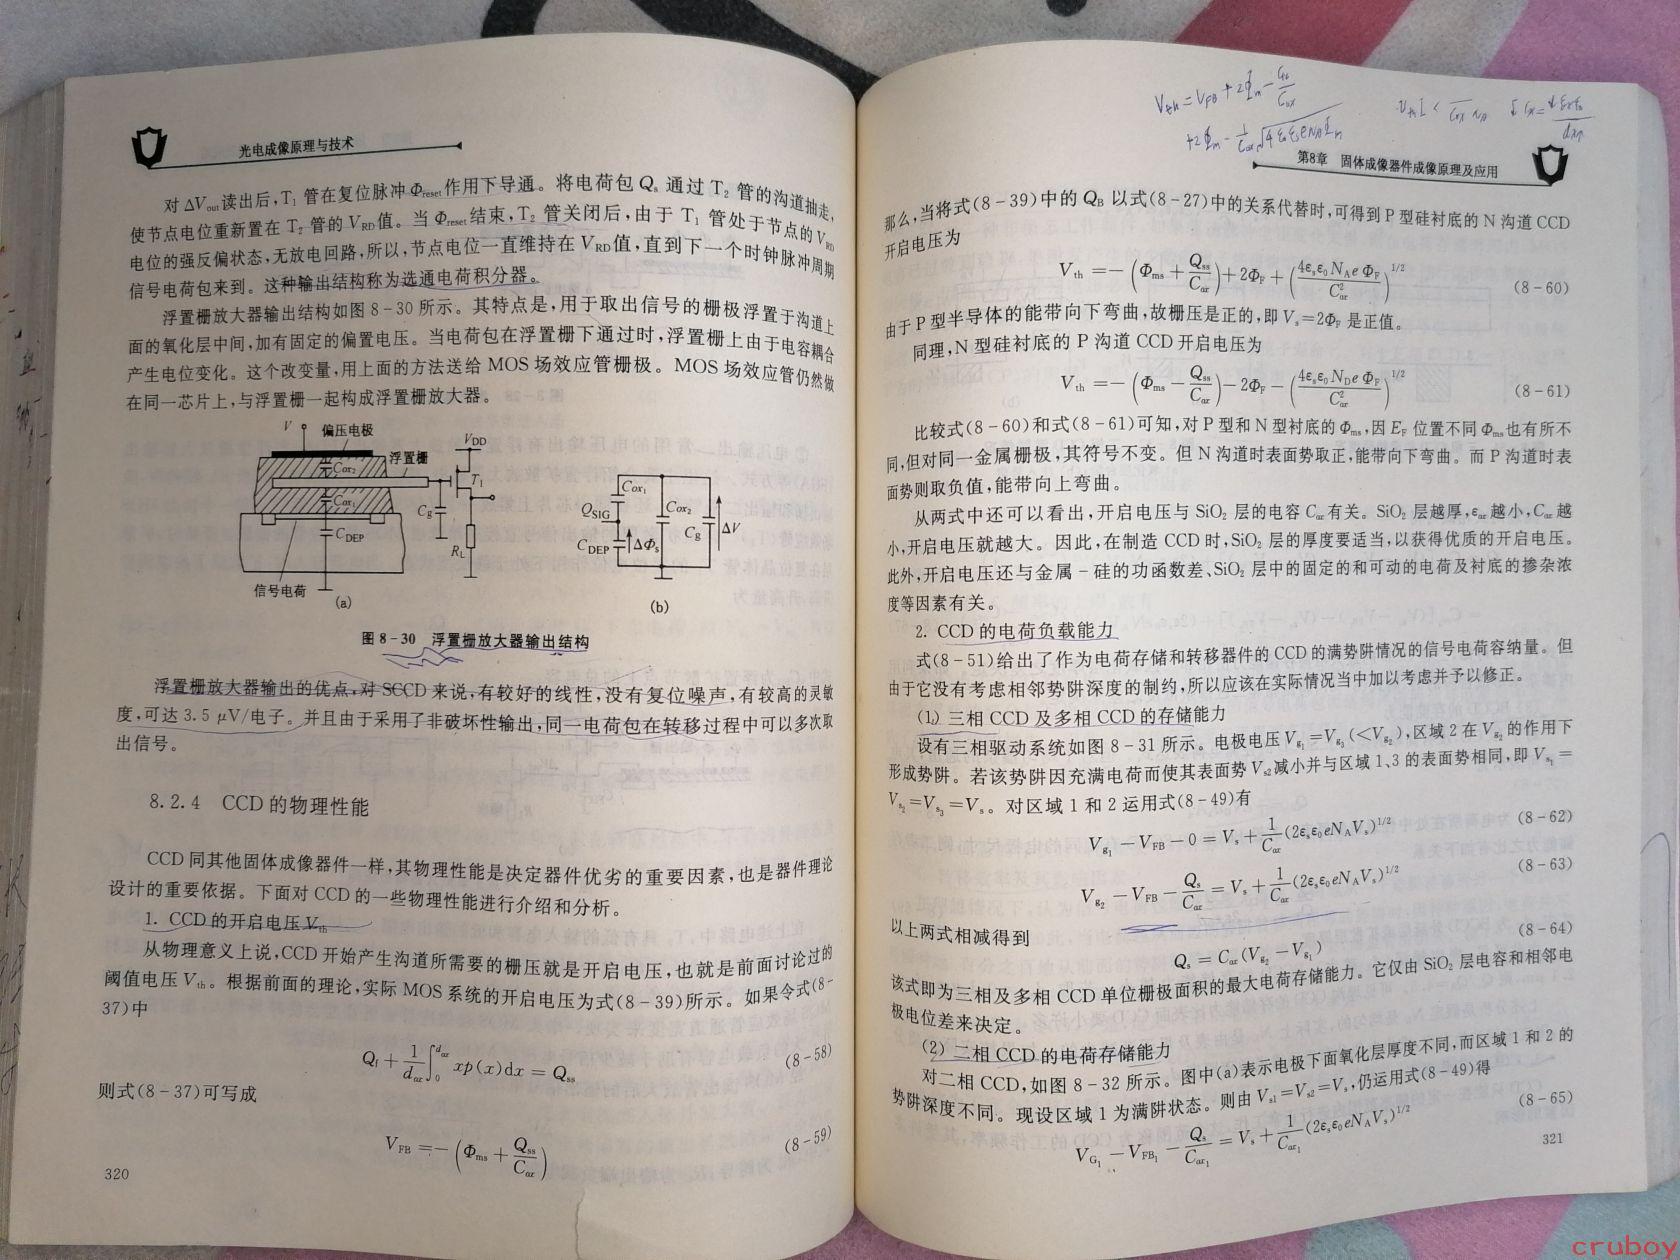 光电成像原理与技术
对 ΔVout读出后,T₁ 管在复位脉冲 Φreset作用下导通。将电荷包 Qs 通过 T₂ 管的沟道抽走,
使节点电位重新置在 T₂ 管的 VRD值。当 Φreset结束,T₂ 管关闭后,由于 T₁ 管处于节点的 VRD
电位的强反偏状态,无放电回路,所以,节点电位一直维持在 VRD值,直到下一个时钟脉冲周期
信号电荷包来到。这种输出结构称为选通电荷积分器。
浮置栅放大器输出结构如图 8-30 所示。其特点是,用于取出信号的栅极浮置于沟道上
面的氧化层中间,加有固定的偏置电压。当电荷包在浮置栅下通过时,浮置栅上由于电容耦合
产生电位变化。这个改变量,用上面的方法送给 MOS 场效应管栅极。MOS 场效应管仍然做
在同一芯片上,与浮置栅一起构成浮置栅放大器。
V 偏压电极
VDD
浮置栅
Cox₂
T₁
Cox₁
Cg
CDEP
RL
信号电荷
(a)
Cox₁
QSIG
Cox₂
Cg
ΔV
CDEP
ΔΦs
(b)
图 8-30 浮置栅放大器输出结构
浮置栅放大器输出的优点,对 SCCD 来说,有较好的线性,没有复位噪声,有较高的灵敏
度,可达 3.5 μV/电子。并且由于采用了非破坏性输出,同一电荷包在转移过程中可以多次取
出信号。
8.2.4 CCD 的物理性能
CCD 同其他固体成像器件一样,其物理性能是决定器件优劣的重要因素,也是器件理论
设计的重要依据。下面对 CCD 的一些物理性能进行介绍和分析。
1. CCD 的开启电压 Vth
从物理意义上说,CCD 开始产生沟道所需要的栅压就是开启电压,也就是前面讨论过的
阈值电压 Vth。根据前面的理论,实际 MOS 系统的开启电压为式(8-39)所示。如果令式(8-
37)中
Qf + 1/dox ∫₀^dox xρ(x)dx = Qss (8-58)
则式(8-37)可写成
VFB = -(Φms + Qss/Cox) (8-59)
320
第8章 固体成像器件成像原理及应用
那么,当将式(8-39)中的 QB 以式(8-27)中的关系代替时,可得到 P 型硅衬底的 N 沟道 CCD
开启电压为
Vth = -(Φms + Qss/Cox) + 2ΦF + (4εsε₀NAeΦF/C²ox)^1/2 (8-60)
由于 P 型半导体的能带向下弯曲,故栅压是正的,即 Vs=2ΦF 是正值。
同理,N 型硅衬底的 P 沟道 CCD 开启电压为
Vth = -(Φms - Qss/Cox) - 2ΦF - (4εsε₀NDeΦF/C²ox)^1/2 (8-61)
比较式(8-60)和式(8-61)可知,对 P 型和 N 型衬底的 Φms,因 EF 位置不同 Φms也有所不
同,但对同一金属栅极,其符号不变。但 N 沟道时表面势取正,能带向下弯曲。而 P 沟道时表
面势则取负值,能带向上弯曲。
从两式中还可以看出,开启电压与 SiO₂ 层的电容 Cox有关。SiO₂ 层越厚,εox越小,Cox越
小,开启电压就越大。因此,在制造 CCD 时,SiO₂ 层的厚度要适当,以获得优质的开启电压。
此外,开启电压还与金属-硅的功函数差、SiO₂ 层中的固定的和可动的电荷及衬底的掺杂浓
度等因素有关。
2. CCD 的电荷负载能力
式(8-51)给出了作为电荷存储和转移器件的 CCD 的满势阱情况的信号电荷容纳量。但
由于它没有考虑相邻势阱深度的制约,所以应该在实际情况当中加以考虑并予以修正。
(1) 三相 CCD 及多相 CCD 的存储能力
设有三相驱动系统如图 8-31 所示。电极电压 Vg₁=Vg₃(<Vg₂),区域 2 在 Vg₂ 的作用下
形成势阱。若该势阱因充满电荷而使其表面势 Vs2减小并与区域 1、3 的表面势相同,即 Vs₁=
Vs₂=Vs₃=Vs。对区域 1 和 2 运用式(8-49)有
Vg₁ - VFB - 0 = Vs + 1/Cox (2εsε₀eNAVs)^1/2 (8-62)
Vg₂ - VFB - Qs/Cox = Vs + 1/Cox (2εsε₀eNAVs)^1/2 (8-63)
以上两式相减得到
Qs = Cox(Vg₂ - Vg₁) (8-64)
该式即为三相及多相 CCD 单位栅极面积的最大电荷存储能力。它仅由 SiO₂ 层电容和相邻电
极电位差来决定。
(2) 二相 CCD 的电荷存储能力
对二相 CCD,如图 8-32 所示。图中(a)表示电极下面氧化层厚度不同,而区域 1 和 2 的
势阱深度不同。现设区域 1 为满阱状态。则由 Vs1=Vs2=Vs,仍运用式(8-49)得
VG₁ - VFB₁ - Qs/Cox₁ = Vs + 1/Cox₁ (2εsε₀eNAVs)^1/2 (8-65)
321
cruboy